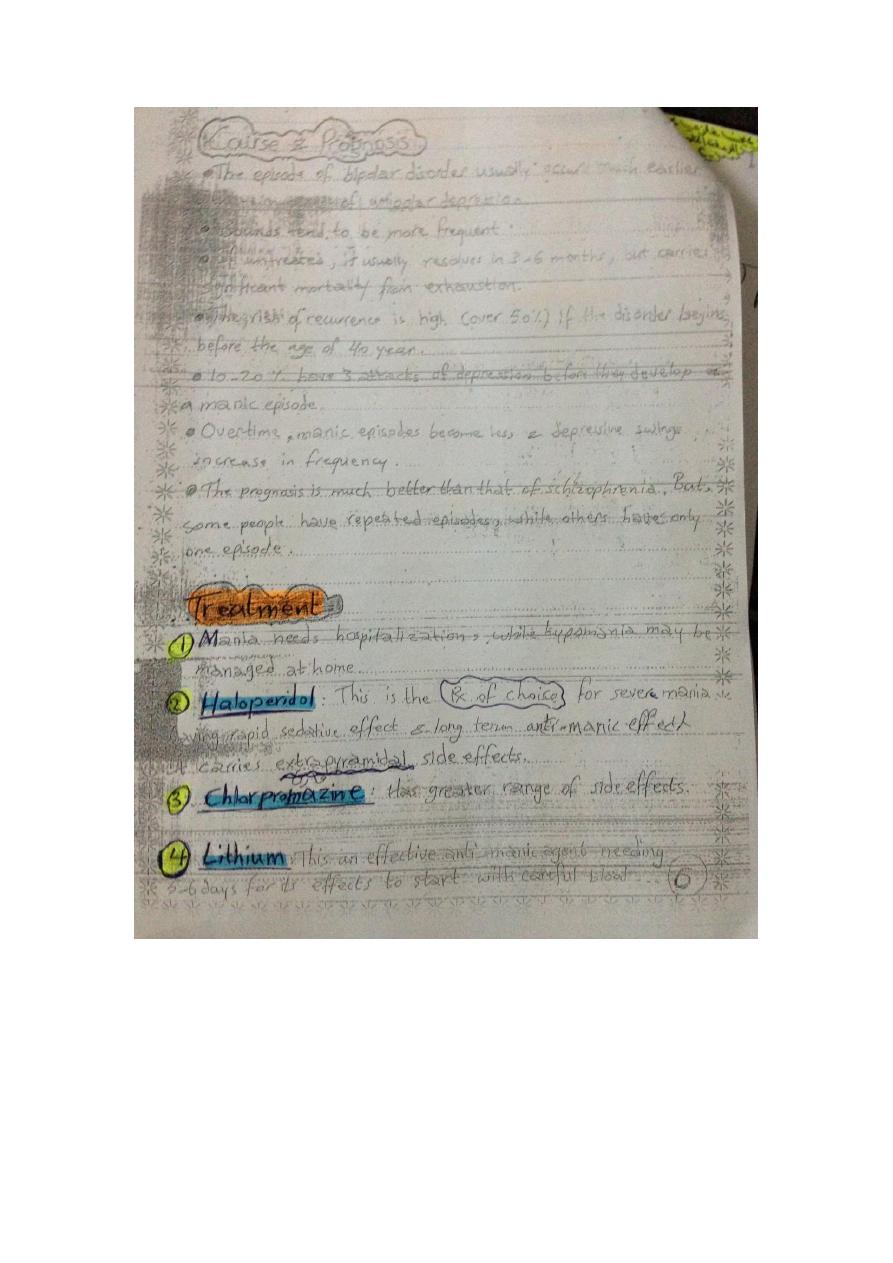 Course & Prognosis
• The episode of bipolar disorder usually occur much earlier
of unipolar depression.
• tend to be more frequent.
• untreated, it usually resolves in 3-6 months, but carries
significant mortality from exhaustion.
• The risk of recurrence is high (over 50%) if the disorder begins
before the age of 40 year.
• 10-20 % have 3 attacks of depression before they develop
a manic episode.
• Overtime, manic episodes become less & depressive swings
increase in frequency.
• The prognosis is much better than that of schizophrenia. But,
some people have repeated episodes, while others have only
one episode.
Treatment
1 Mania needs hospitalization, while hypomania may be
managed at home
2 Haloperidol: This is the Rx of choice for severe mania
having rapid sedative effect & long term anti-manic effect
It carries extrapyramidal side effects.
3 Chlorpromazine: Has greater range of side effects.
4 Lithium: This an effective anti manic agent needing
5-6 days for its effects to start with careful blood
6